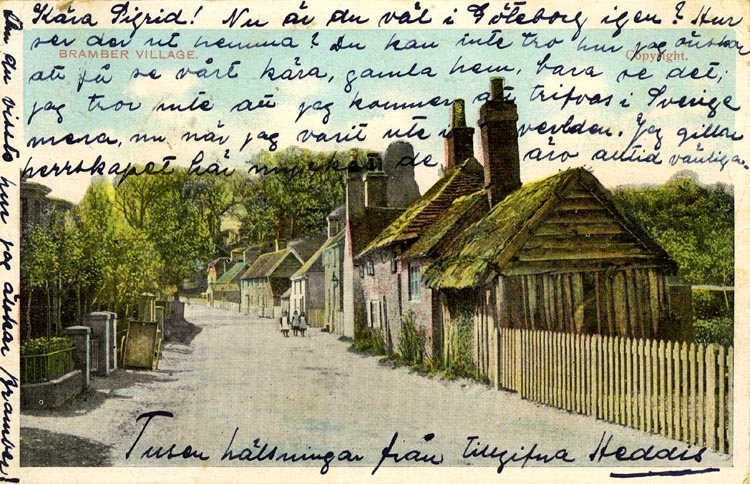 Kära Sigrid! Nu är du väl i Göteborg igen? Hur
ser der ut hemma? Du kan inte tro hur jag önskar
BRAMBER VILLAGE.
Copyright.
att få se vårt kära, gamla hem, bara se det;
jag tror inte att jag kommer att trifvas i Sverige
mera, nu när jag varit ute i världen. Jag gillar
herrskapet här mycket de äro alltid vänliga.
Tusen hälsningar från tillgifna Heddis
Om du visste hur jag älskar Bramber!